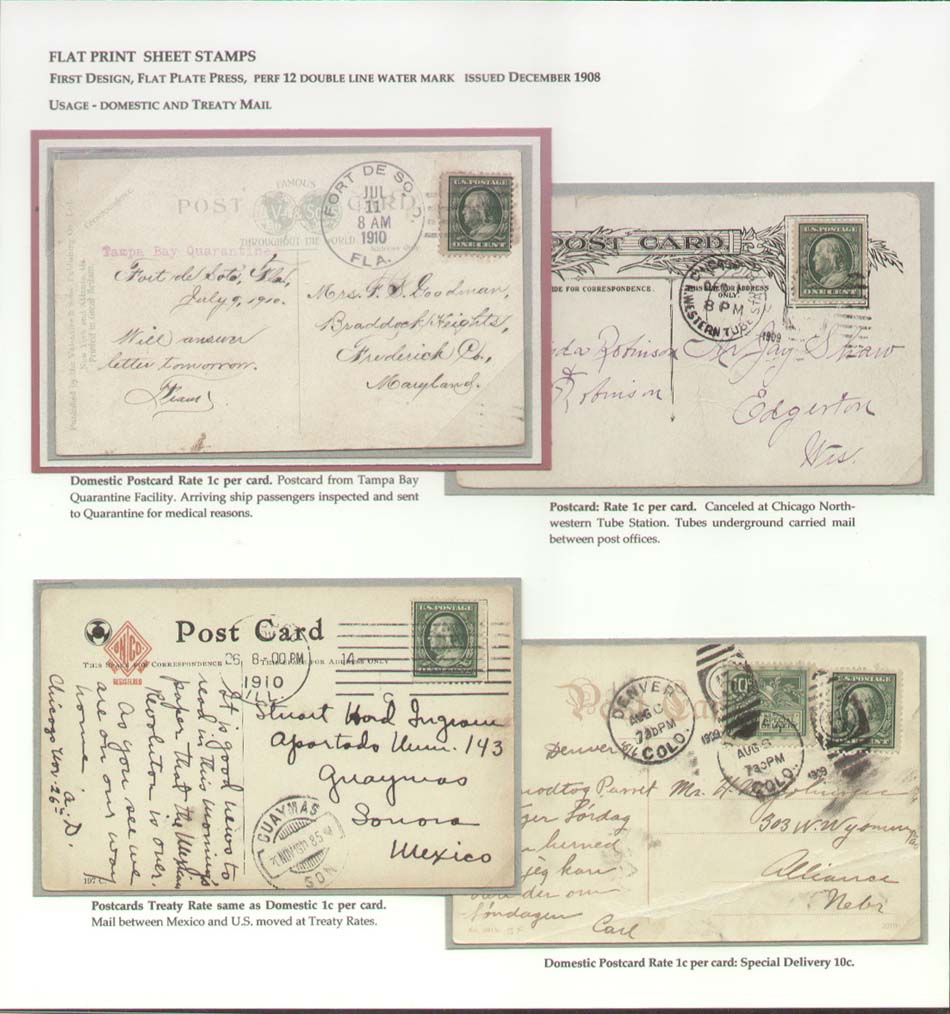 FLAT PRINT SHEET STAMPS
FIRST DESIGN, FLAT PLATE PRESS, PERF 12 DOUBLE LINE WATER MARK ISSUED DECEMBER 1908
USAGE - DOMESTIC AND TREATY MAIL
FAMOUS
POST CARD
THROUGHOUT THE WORLD
Tampa Bay Quarantine
Fort de Soto, Fla,
July 9, 1910.
Will answer
letter tomorrow.
FORT DE SOTO
JUL
11
8 AM
1910
FLA.
U.S. POSTAGE
ONE CENT
Mrs. F. S. Goodman,
Braddock Heights,
Frederick Co.,
Maryland.
Domestic Postcard Rate 1c per card. Postcard from Tampa Bay
Quarantine Facility. Arriving ship passengers inspected and sent
to Quarantine for medical reasons.
POST CARD
IDE FOR CORRESPONDENCE
THIS SIDE FOR ADDRESS
ONLY.
CHICAGO
8 PM
WESTERN TUBE STA.
1909
U.S. POSTAGE
ONE CENT
da Robinson
&
Robinson
Mr Jay Shaw
Edgerton
Wis.
Postcard: Rate 1c per card. Canceled at Chicago North-
western Tube Station. Tubes underground carried mail
between post offices.
UNICO
REGISTERED
Post Card
THIS SPACE FOR CORRESPONDENCE
THIS SPACE FOR ADDRESS ONLY
26 8-00 PM
1910
ILL.
U.S. POSTAGE
It is good news to
read in this morning's
paper that the Mexican
Revolution is over.
As you see we
are on our way
home.
a. D.
Chicago Nov. 26
197 C
Stuart Hord Ingram
Apartado Num. 143
Guaymas
Sonora
Mexico
GUAYMAS
SON
Postcards Treaty Rate same as Domestic 1c per card.
Mail between Mexico and U.S. moved at Treaty Rates.
Post Card
DENVER
AUG
730PM
COLO.
1909
AUG
730PM
COLO.
1909
10
U.S. POSTAGE
ONE CENT
Denver
Mr. H.
303 W. Wyoming
Alliance
Nebr
jeg kan
der om
Söndagen
Carl
Domestic Postcard Rate 1c per card: Special Delivery 10c.